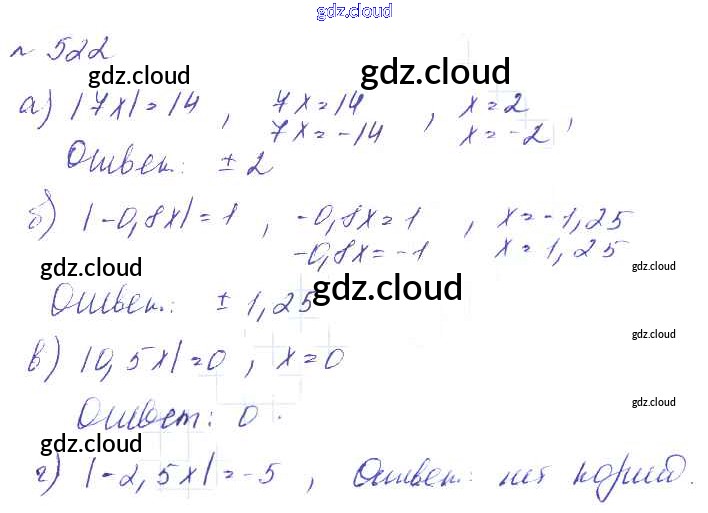 gdz.cloud
№ 522
gdz.cloud gdz.cloud
а) |7x|=14, 7x=14, x=2
7x=-14 x=-2,
Ответ: ±2
б) |-0,8x|=1, -0,8x=1, x=-1,25
-0,8x=-1 x=1,25
gdz.cloud gdz.cloud
Ответ: ±1,25
gdz.cloud
gdz.cloud
в) |0,5x|=0, x=0
gdz.cloud
Ответ: 0.
gdz.cloud
г) |-2,5x|=-5, Ответ: нет корней.